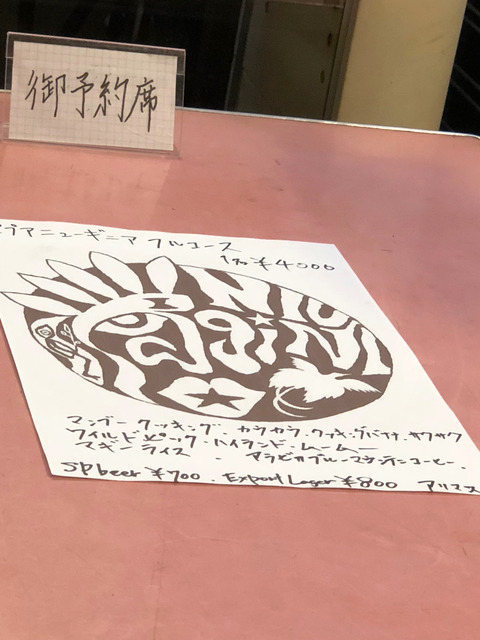 御予約席
プアニューギニア フルコース
1名¥4000
マンゴークッキング・カラカラ・クッキングバナナ・サクサク
ワイルドピッグ・ハイランド・ムームー
マギーライス・アラビカブルーマウンテンコーヒー.
SP beer ¥700. Export Lager ¥800